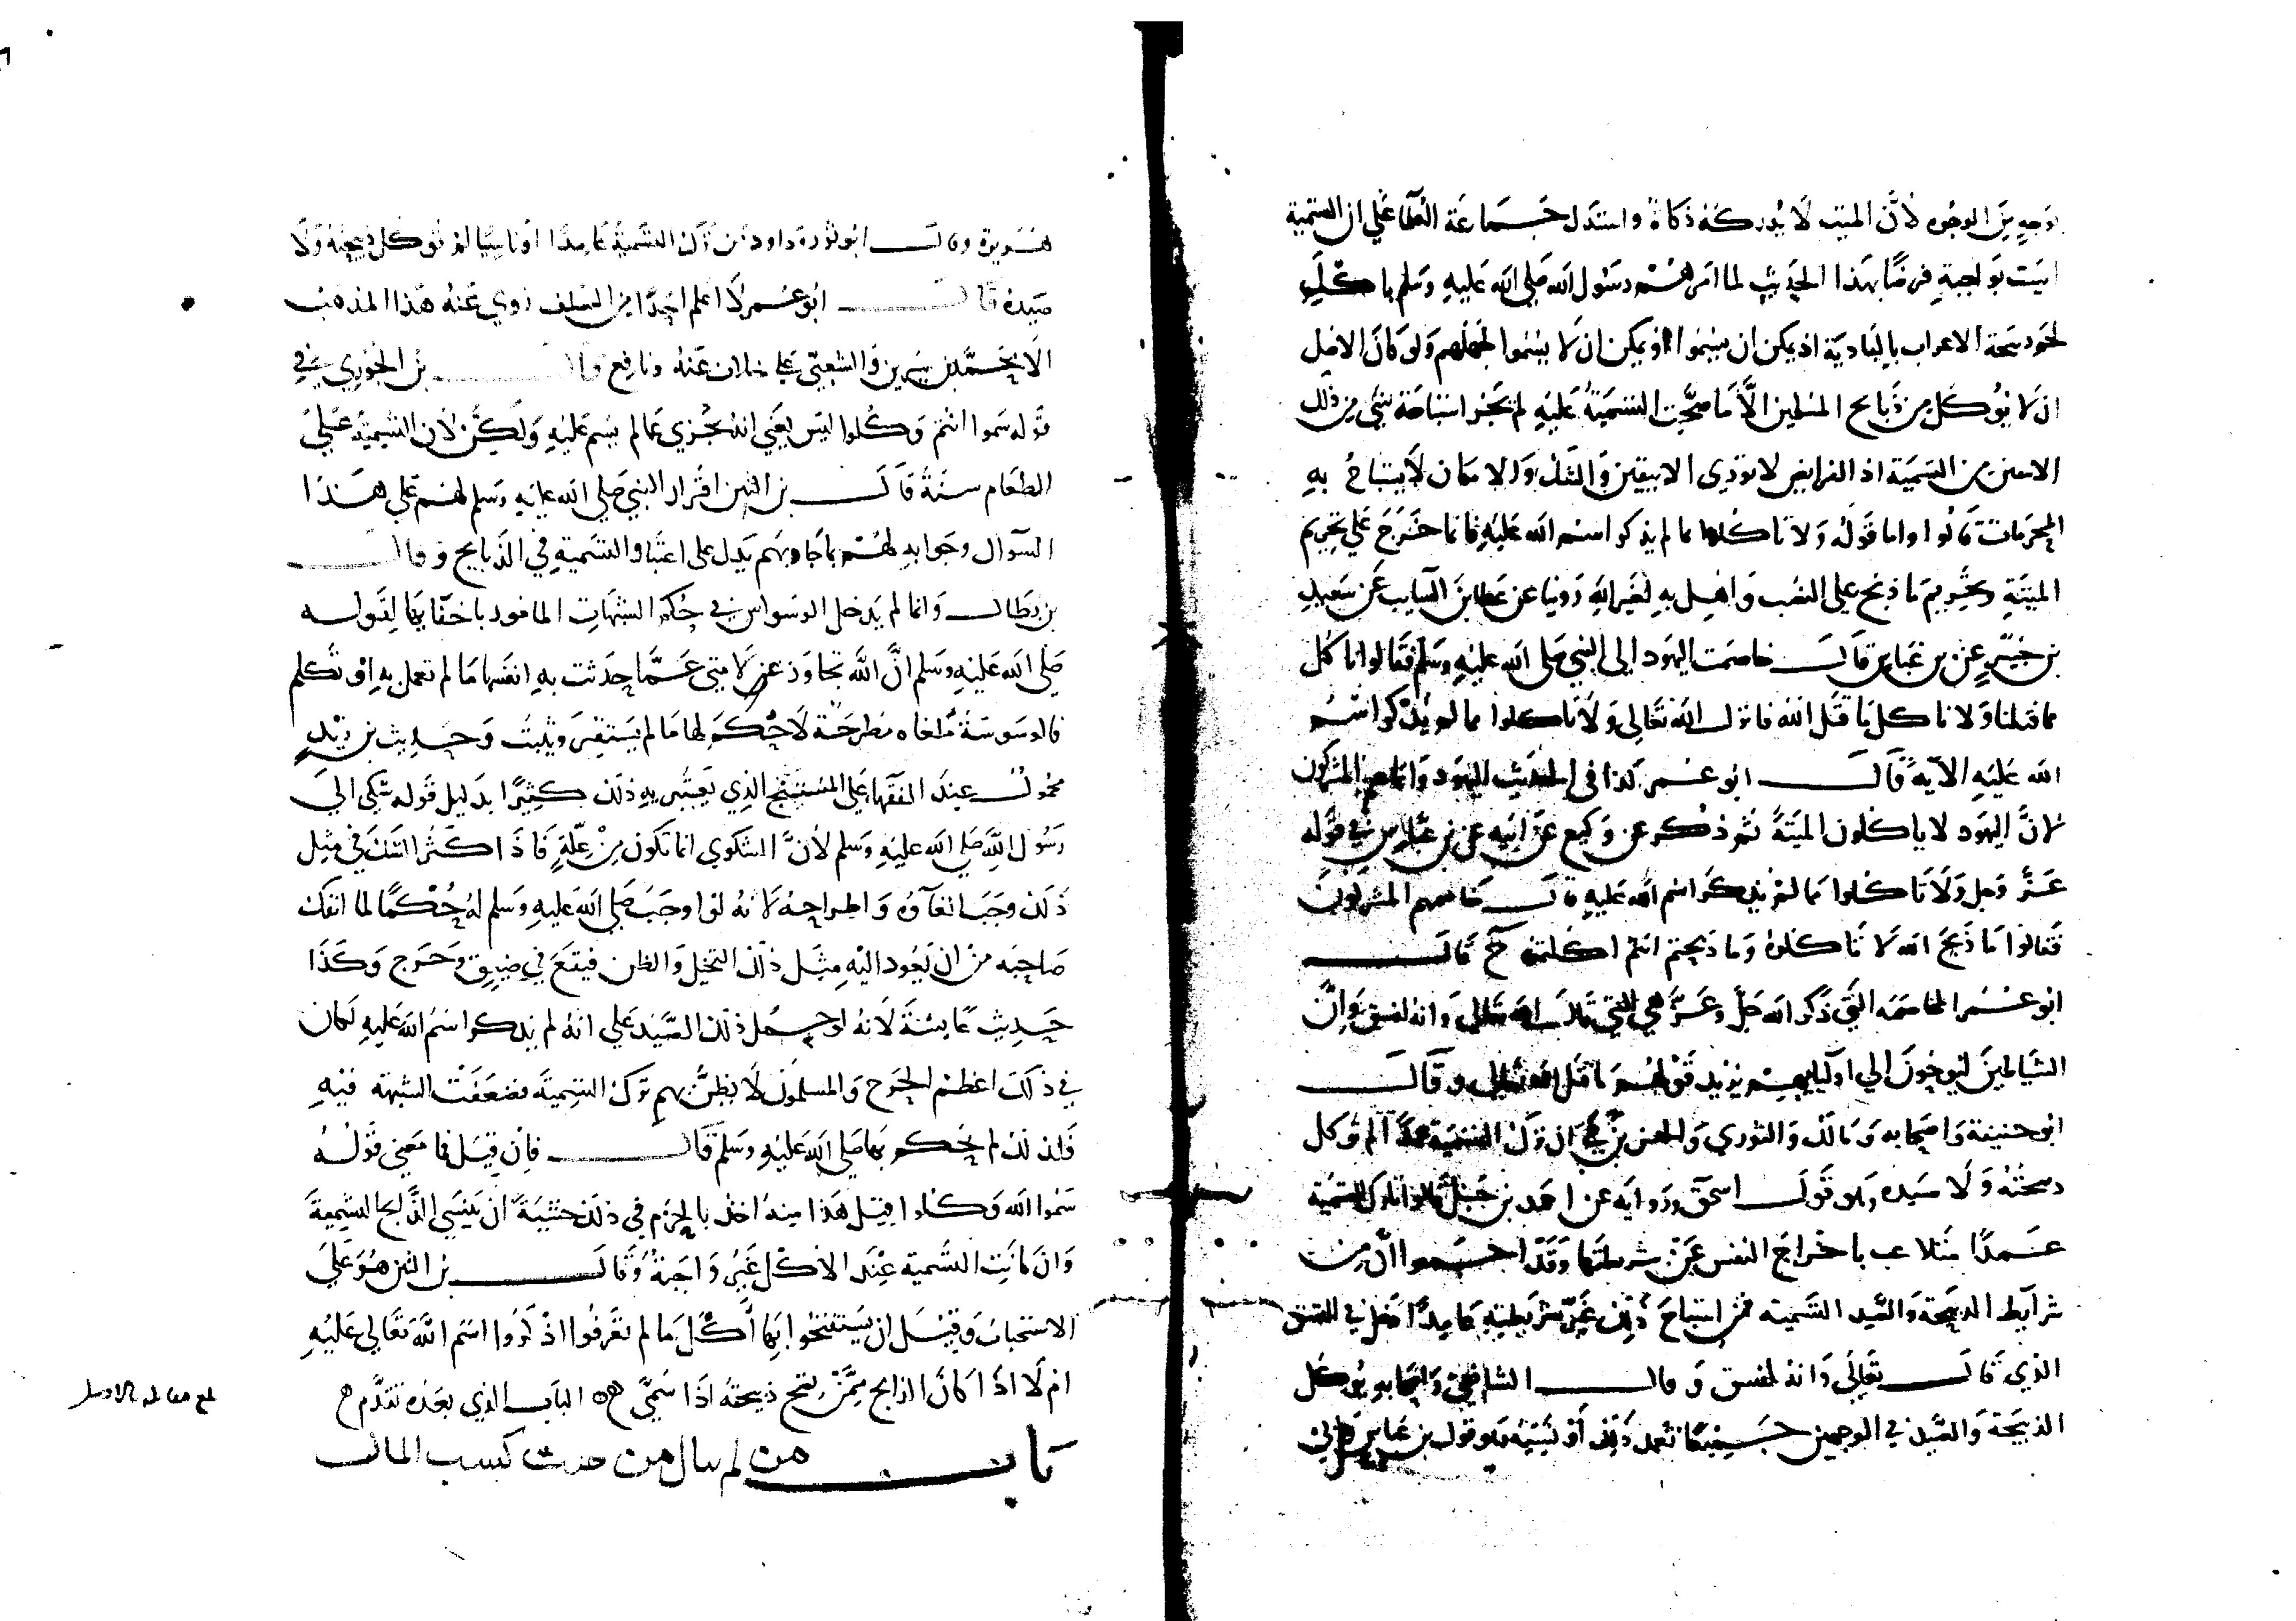 وجه من الوجوه لأن الميت لا يدركه ذكاة واستدل جماعة العلما على ان التسمية
ليست بواجبة فرضا بهذا الحديث لما امرهم رسول الله صلى الله عليه وسلم باكل
لحوم ذبيحة الاعراب بالبادية اذ يمكن ان يسموا او يمكن ان لا يسموا لجهلهم ولو كان الاصل
ان لا يؤكل من ذبايح المسلمين الا ما صحت التسمية عليه لم يجز استباحة شي من ذلك
من التسمية اذ الفرايض لا تؤدى الا بيقين والشك والامكان لا يستباح به
المحرمات قالوا واما قوله ولا تاكلوا مما لم يذكر اسم الله عليه فانما خرج على تحريم
الميتة وتحريم ما ذبح على النصب واهل به لغير الله روينا عن عطا بن السايب عن سعيد
بن جبير عن بن عباس قال خاصمت اليهود الى النبي صلى الله عليه وسلم فقالوا اناكل
مما قتلنا ولا ناكل ما قتل الله فانزل الله تعالى ولا تاكلوا مما لم يذكر اسم
الله عليه الآية قال ابو عمر كذا في الحديث اليهود وانما هم المشركون
لان اليهود لا ياكلون الميتة ثم ذكر عن وكيع عن ابيه عن بن عباس في قوله
عز وجل ولا تاكلوا مما لم يذكر اسم الله عليه قال خاصمهم المشركون
فقالوا ما ذبح الله لا تاكلون وما ذبحتم انتم اكلتم قال
ابو عمر المخاصمة التي ذكر الله جل وعز هي التي قال الله تعالى وانه لفسق وان
الشياطين ليوحون الى اوليايهم يريد قولهم ما قتل الله وقال
ابو حنيفة واصحابه ومالك والثوري والحسن بن حي ان ترك التسمية عمدا لم تؤكل
ذبيحته ولا صيده وهو قول اسحق ورواية عن احمد بن حنبل قالوا تارك التسمية
عمدا متلاعب باخراج النفس عن شريطتها وقد اجمعوا ان من
شرايط الذبيحة والصيد التسمية فمن استباح ذلك على غير شريطته عامدا دخل في الفسق
الذي قال تعالى وانه لفسق وقال الشافعي واصحابه يؤكل
الذبيحة والصيد في الوجهين جميعا تعمد ذلك او نسيه وهو قول بن عباس وابي
هريرة وقال ابو ثور وداود من ترك التسمية عامدا او ناسيا لم تؤكل ذبيحته ولا
صيده قال ابو عمر لا اعلم احدا من السلف روي عنه هذا المذهب
الا محمد بن سيرين والشعبي على خلاف عنه ونافع وقال بن الجوزي في
قوله سموا انتم وكلوا ليس يعني انه يجزي عما لم يسم عليه ولكن لان التسمية على
الطعام سنة قال بن التين اقرار النبي صلى الله عليه وسلم لهم على هذا
السوال وجوابه لهم بما جاوبهم يدل على اعتبار التسمية في الذبايح وقال
بن بطال وانما لم يدخل الوسواس في حكم الشبهات المامور باجتنابها لقوله
صلى الله عليه وسلم ان الله تجاوز عن لامتي عما حدثت به انفسها ما لم تعمل به او تكلم
فالوسوسة ملغاه مطرحة لا حكم لها ما لم يستقر ويثبت وحديث بن زيد
محمول عند الفقها على المستنكح الذي يعتريه ذلك كثيرا بدليل قوله شكي الى
رسول الله صلى الله عليه وسلم لان الشكوي انما تكون من علة فاذا كثر الشك في مثل
ذلك وجب الغاؤه واطراحه لانه لو اوجب صلى الله عليه وسلم له حكما لما انفك
صاحبه من ان يعود اليه مثل ذلك التخيل والظن فيقع في ضيق وحرج وكذا
حديث عايشة لانه لو حمل ذلك الصيد على انه لم يذكر اسم الله عليه لكان
في ذلك اعظم الحرج والمسلمون لا يظن بهم ترك التسمية فضعفت الشبهة فيه
فلذلك لم يحكم بها صلى الله عليه وسلم قال فان قيل فما معنى قوله
سموا الله وكلوا قيل هذا منه اخذ بالحزم في ذلك خشية ان ينسى الذابح التسمية
وان كانت التسمية عند الاكل غير واجبة وقال بن التين هو على
الاستحباب وقيل ان يستفتحوا بها اكل ما لم تعرفوا اذكروا اسم الله تعالى عليه
ام لا اذا كان الذابح ممن تصح ذبيحته اذا سمى الباب الذي بعده تقدم
باب من لم يبال من حيث كسب المال